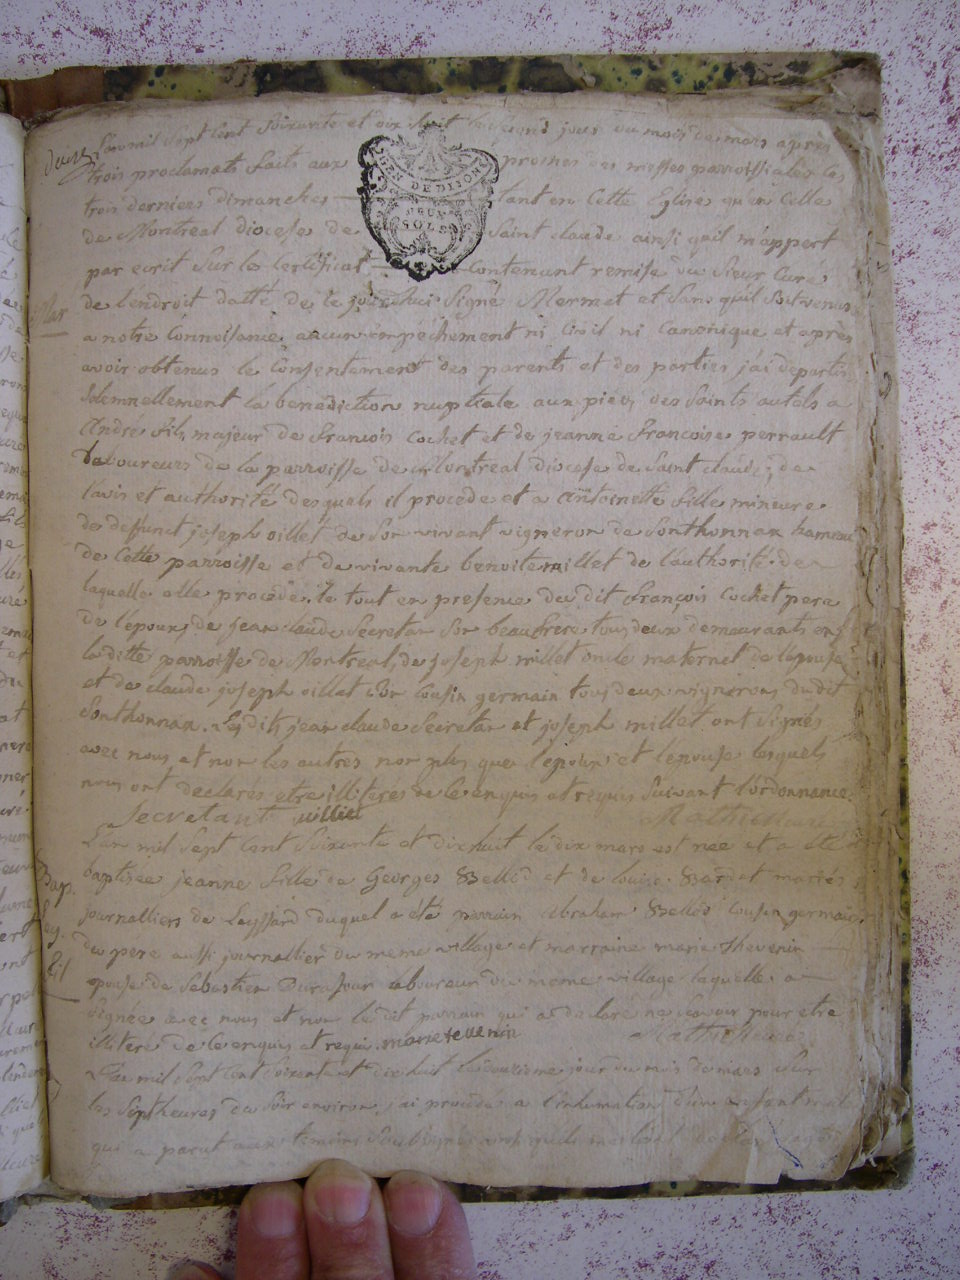 L'an mil sept cent soixante et dix huit le second jour du mois de mars après
trois proclamats faits aux prosnes des messes parroissiales les
GEN. DE DIJON
DEUX
SOLS
trois derniers dimanches tant en cette Eglise qu'en celle
de Montreal diocese de Saint claude ainsi quil m'appert
par ecrit sur le certificat contenant remise du sieur Curé
de l'endroit datté de ce jourdhui signé Mermet et sans quil soit venus
Mar
a notre connoisance aucun empechement ni civil ni canonique et après
avoir obtenus le consentement des parents et des parties j'ai departis
solemnellement la benediction nuptiale aux pieds des saints autels a
André fils majeur de françois cochet et de jeanne françoise perrault
laboureurs de la parroisse de Montreal diocese de saint claude, de
l'avis et authorité desquels il procede et a antoinette fille mineure
de deffunct joseph oillet de son vivant vigneron de Sonthonnax hameau
de cette parroisse et de vivante benoite millet de l'authorité de
laquelle elle procede. le tout en presence du dit françois Cochet pere
de l'epoux, de jean claude Secretan son beaufrere tous deux demeurants en
la ditte parroisse de Montreal, de joseph millet oncle maternel de l'epouse
et de claude joseph oillet son cousin germain tous deux vignerons du dit
Sonthonnax. Lesdits jean claude Secretan et joseph millet ont signés
avec nous et non les autres non plus que l'epoux et l'epouse lesquels
nous ont declarés etre illiterés de ce enquis et requis suivant l'ordonnance.
Secretant milliet
L'an mil sept cent soixante et dix huit le dix mars est née et a été
Bap.
baptisée jeanne fille de Georges Bellod et de louise Bardet mariés
journalliers de Leyssard duquel a eté parrain Abraham Bellod cousin germain
Ley.
du pere aussi journallier du meme village et marraine marie thevenin
epouse de sebastien Durafour laboureur du meme village laquelle a
signée avec nous et non le dit parrain qui a declaré ne scavoir pour etre
illiteré de ce enquis et requis. marie tevenin
L'an mil sept cent soixante et dix huit le douzieme jour du mois de mars sur
les sept heures du soir environ, j'ai procedé a l'inhumation d'un enfant
qui a parut aux temoins soussignés